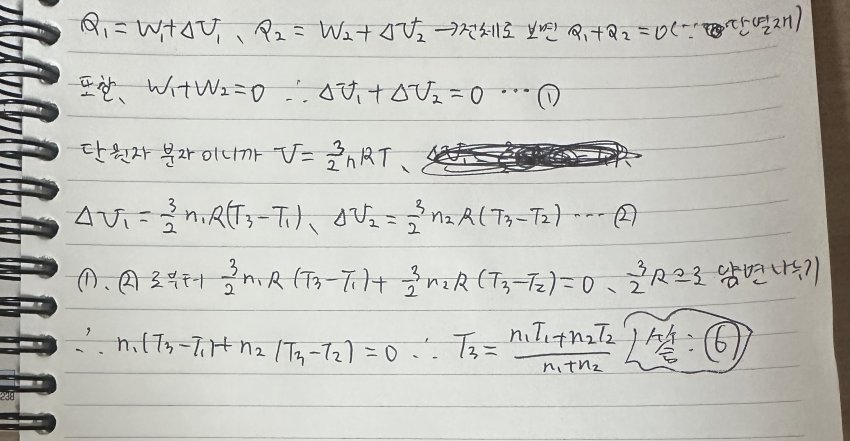 Q₁ = W₁+ΔU₁、Q₂ = W₂+ΔU₂ →전체로 보면 Q₁+Q₂=0(∵ 단열재)
또한、W₁+W₂=0 ∴ΔU₁+ΔU₂=0 … ①
단원자 분자이니까 U=3/2nRT、
ΔU₁=3/2n₁R(T₃-T₁)、ΔU₂=3/2n₂R(T₃-T₂) … ②
①、②로부터 3/2n₁R(T₃-T₁)+3/2n₂R(T₃-T₂)=0、3/2R으로 양변나누기
∴ n₁(T₃-T₁)+n₂(T₃-T₂)=0 ∴ T₃=(n₁T₁+n₂T₂)/(n₁+n₂)
:⑥
238